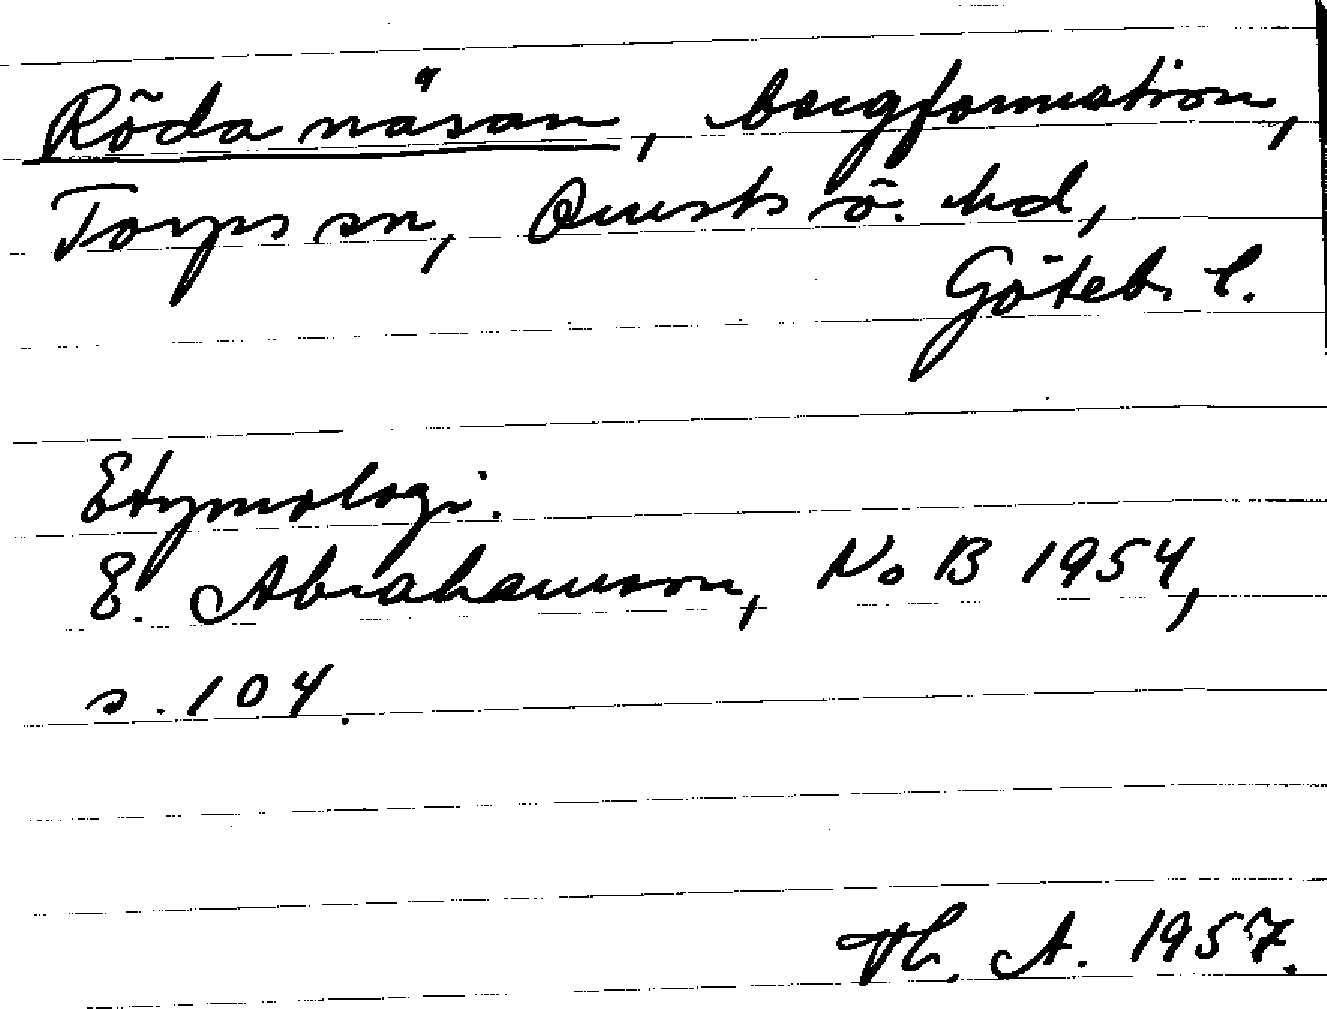 Röda näsan, bergformation,
Torps sn, Orusts ö. hd,
Göteb. l.
Etymologi.
E. Abrahamson, NoB 1954,
s. 104.
Th. A. 1957.